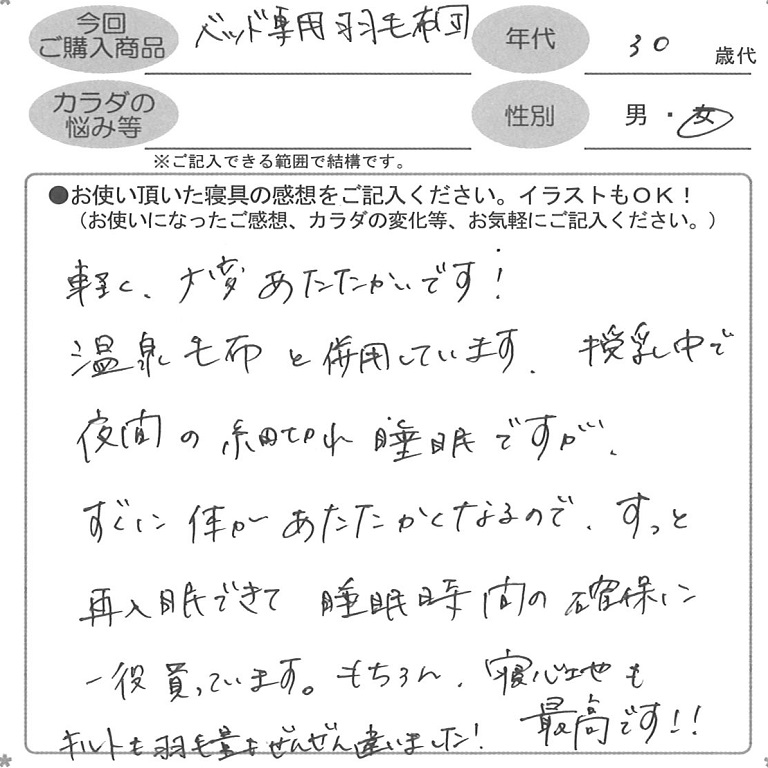 今回
ご購入商品
ベッド専用羽毛布団
年代
30 歳代
カラダの
悩み等
性別
男・女
※ご記入できる範囲で結構です。
●お使い頂いた寝具の感想をご記入ください。イラストもOK！
（お使いになったご感想、カラダの変化等、お気軽にご記入ください。）
軽く、大変あたたかいです！
温泉毛布と併用しています。授乳中で
夜間の細切れ睡眠ですが、
すぐに体があたたかくなるので、すっと
再入眠できて睡眠時間の確保に
一役買っています。もちろん、寝心地も
最高です!!
キルトも羽毛量もぜんぜん違いました!